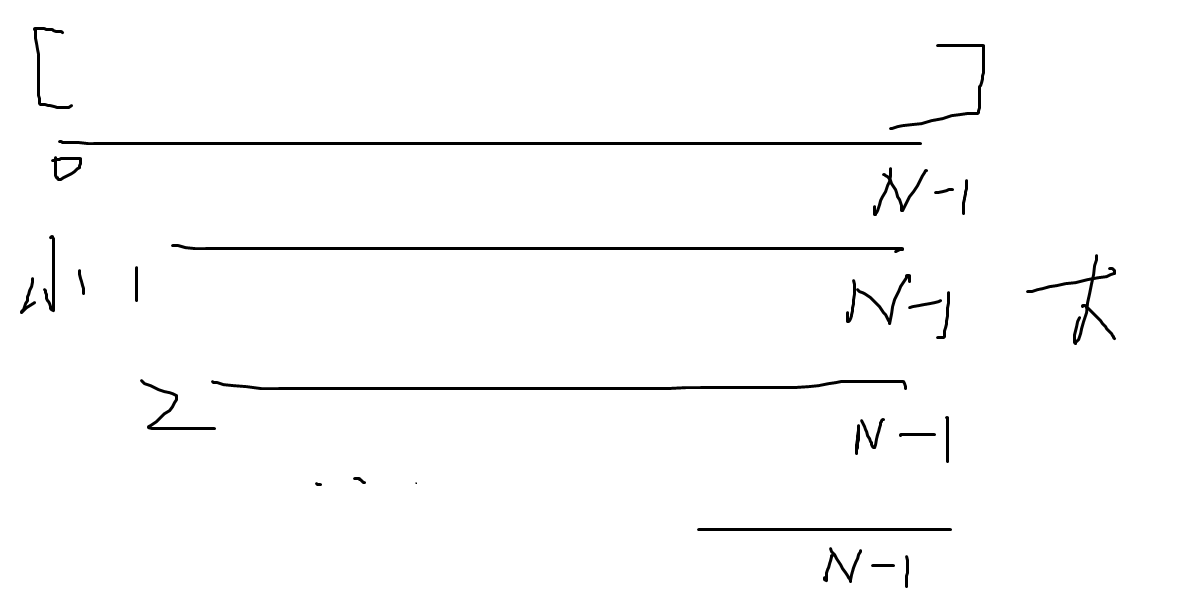 [ ]
0 N-1
小 1 N-1 大
2 N-1
...
N-1